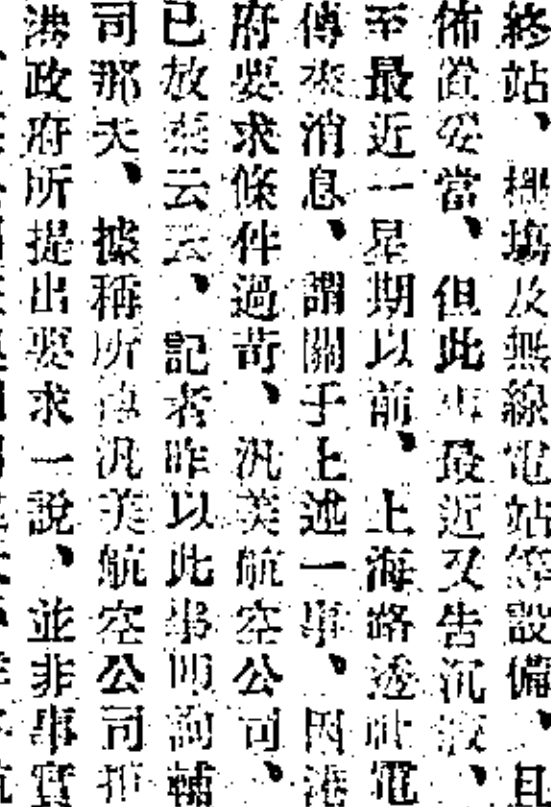 終站、機塲及無線電站等設備、目
佈置妥當、但此事最近又告沉寂、
至最近一星期以前、上海路透社電
傳來消息、謂關于上述一事、因港
府要求條件過苛、汎美航空公司、
已放棄云云、記者昨以此事叩詢輔
司那夫、據稱所傳汎美航空公司拒
港政府所提出要求一說、並非事實